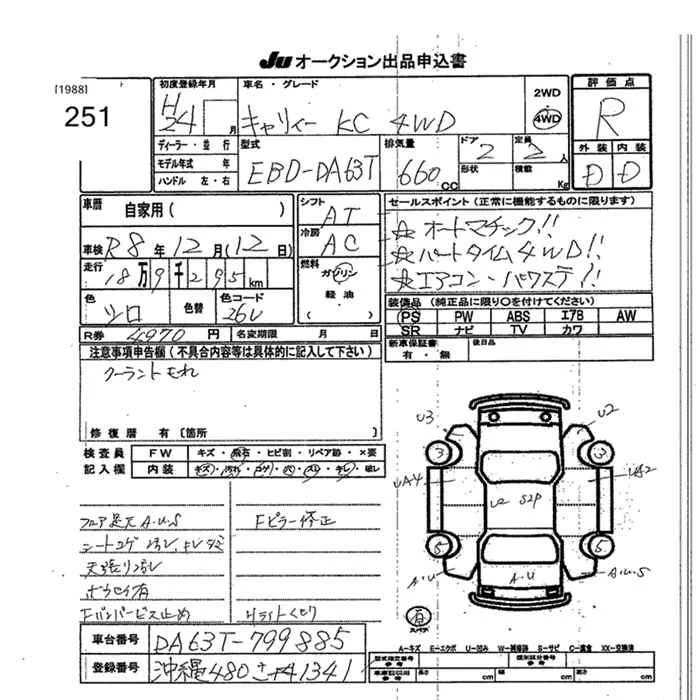 Ju オークション出品申込書
[1988]
251
初度登録年月
H
24 月
車名・グレード
キャリィー KC 4WD
2WD
4WD
評価点
R
ディーラー・並行
モデル年式 年
ハンドル 左・右
型式
EBD-DA63T
排気量
660 CC
ドア
2
形状
定員
2 人
積載
Kg
外装 内装
D D
車暦
自家用( )
シフト
AT
車検 R8年12月(12日)
冷房
AC
走行
18万9千295km
燃料
ガソリン
軽油
( )
色
シロ
色替
色コード
26U
セールスポイント(正常に機能するものに限ります)
☆オートマチック!!
☆パートタイム4WD!!
☆エアコン・パワステ!!
装備品(純正品に限り○を付けてください)
PS PW ABS エアB AW
SR ナビ TV カワ
R券 4970円 名変期限 月 日
新車保証書
有・無
後日品
注意事項申告欄(不具合内容等は具体的に記入して下さい)
クーラントもれ
修復暦 有〔箇所 〕
検査員
記入欄
FW キズ・飛石・ヒビ割・リペア跡・×要
内装 キズ・汚れ・コゲ・穴・スレ・キレ・破レ
フロア足元A.U.S
天張り
Fバンパービス止め
Fピラー修正
Hライトくもり
U3
U2
3
3
UA4
U2 S2P
5
5
A.U
A.U
A.U.S
有
スペア
車台番号 DA63T-799885
登録番号 沖縄480 さ 41341
A-キズ E-エクボ U-凹み W-補修跡 S-サビ C-腐食 XX-交換済
長さ cm 幅 cm 高さ cm